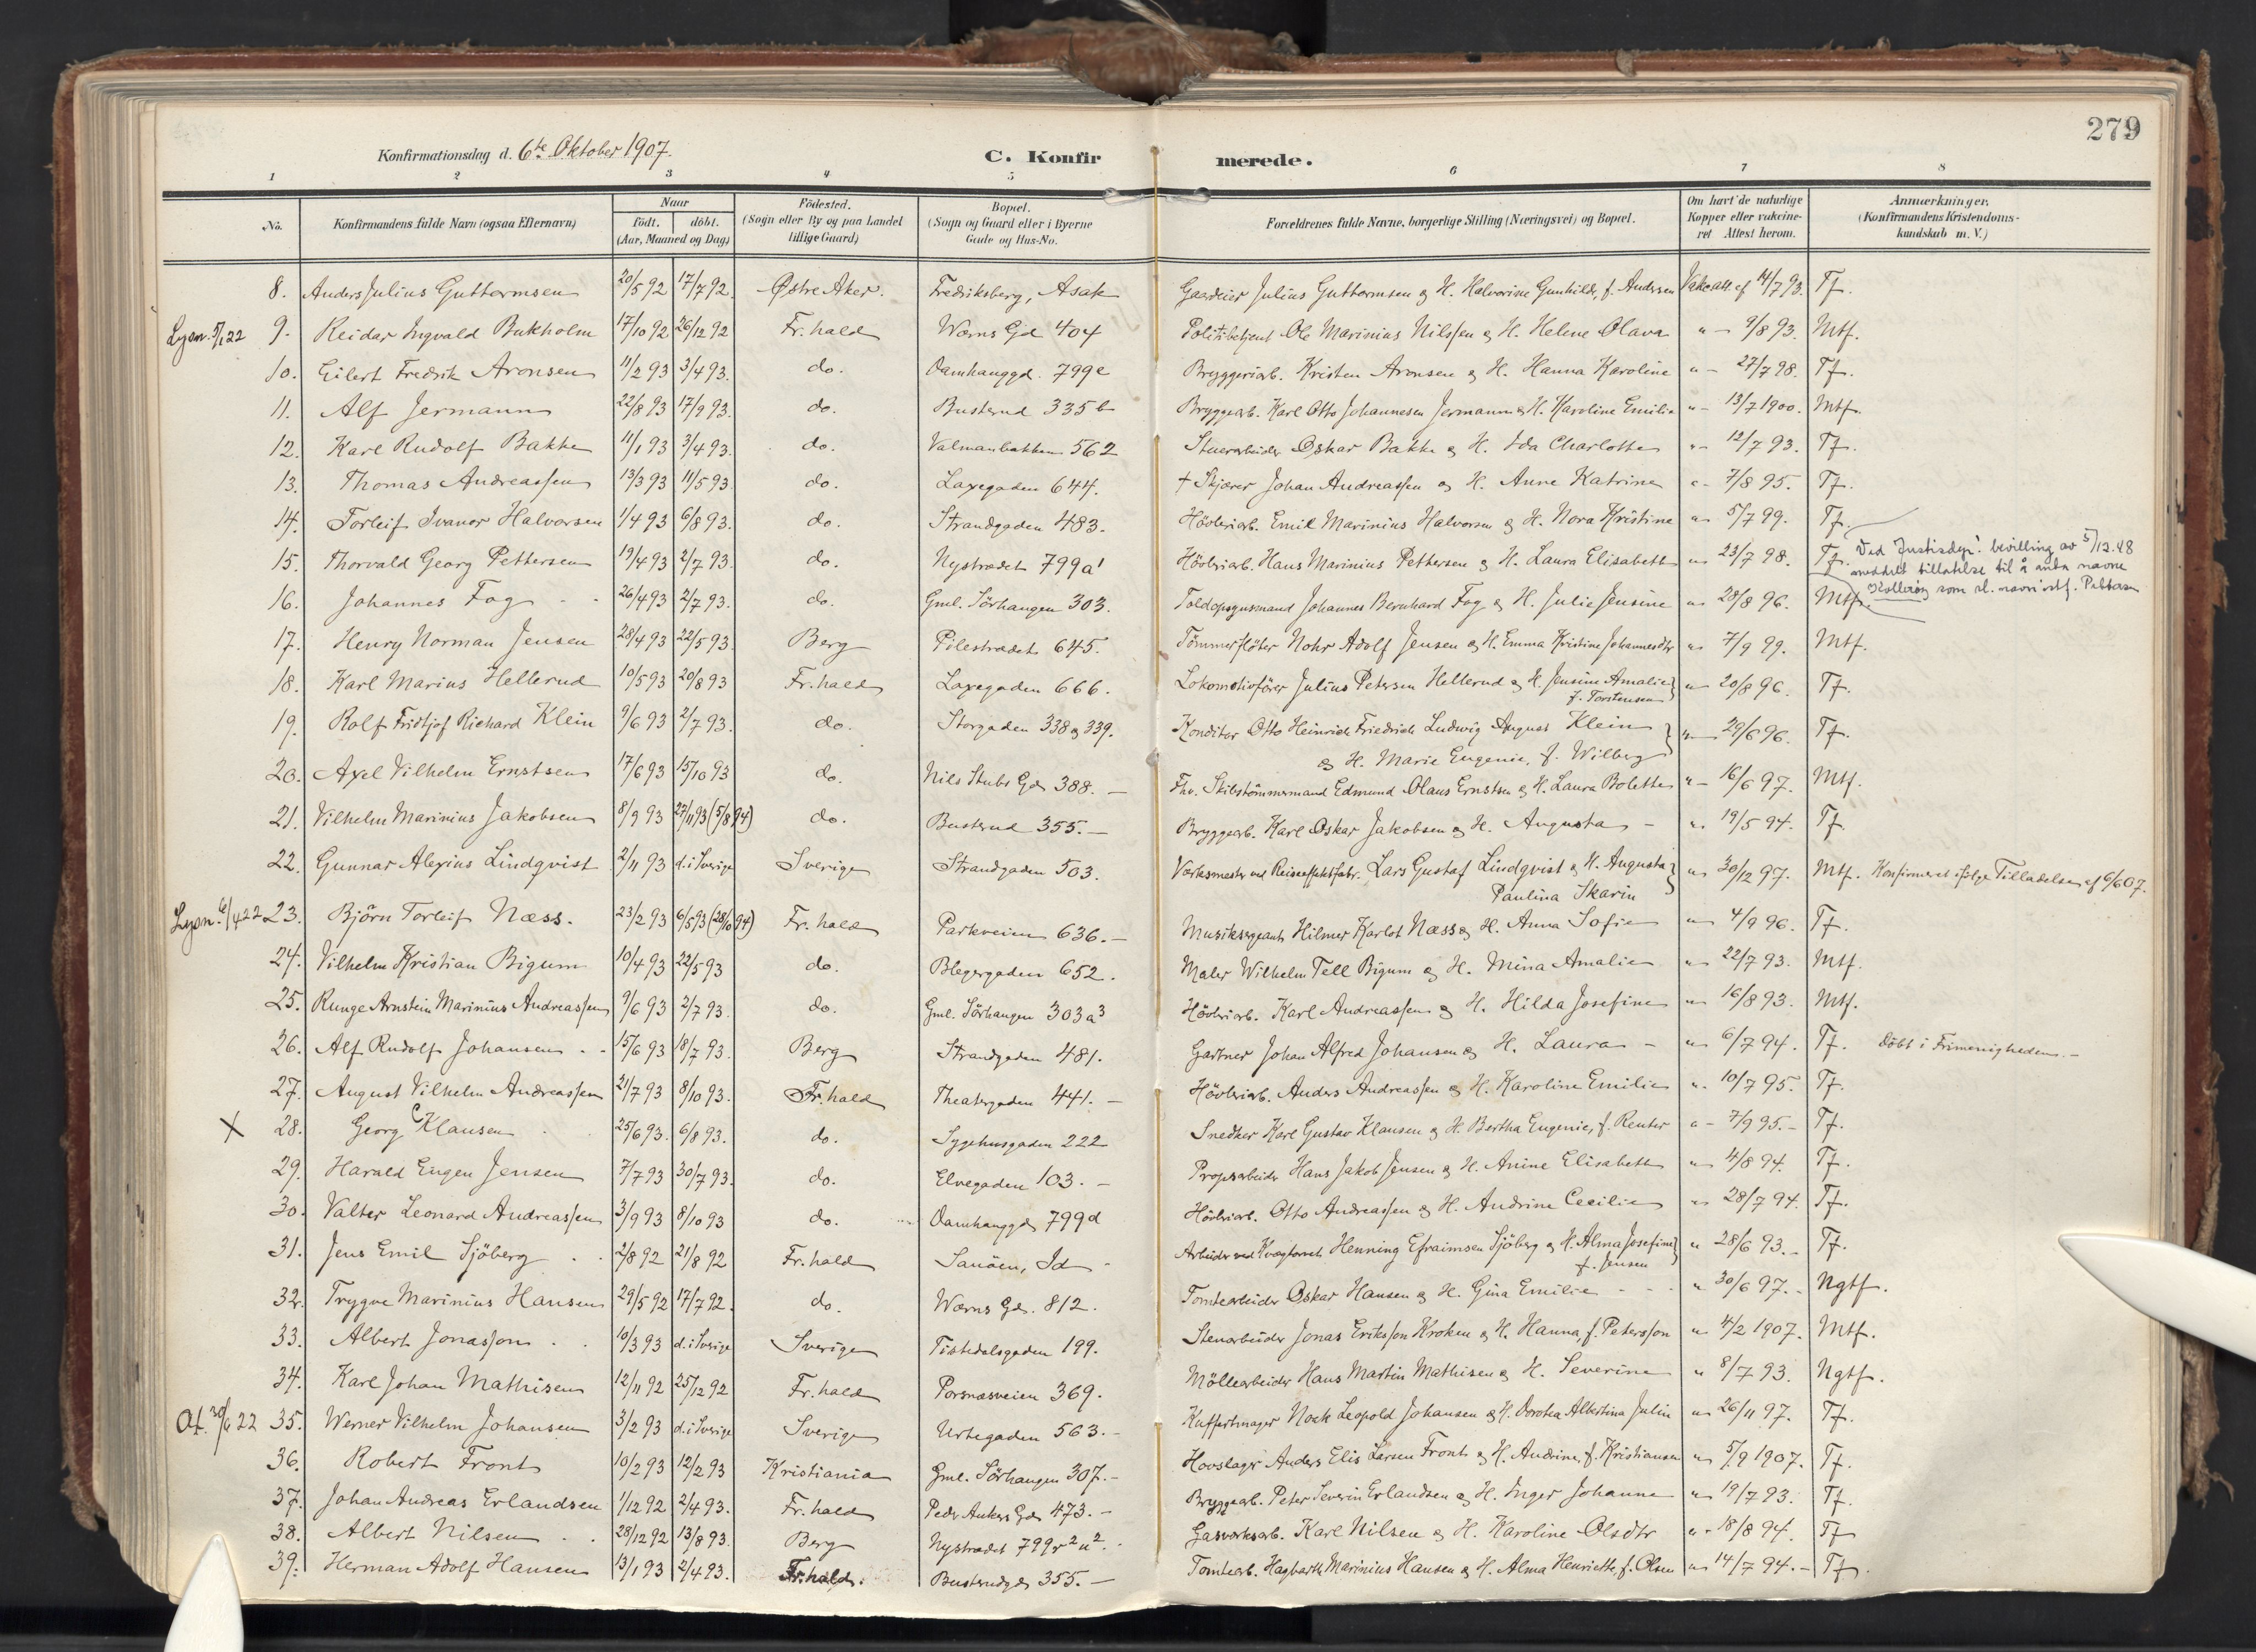 279
Konfirmationsdag d. 6te Oktober 1907.
C. Konfirmerede.
1 2 3 4 5 6 7 8
No.
Konfirmandens fulde Navn (ogsaa Efternavn)
Naar
födt. döbt.
(Aar, Maaned og Dag)
Födested.
(Sogn eller By og paa Landet
tillige Gaard)
Bopæl.
(Sogn og Gaard eller i Byerne
Gade og Hus-No.
Forældrenes fulde Navne, borgerlige Stilling (Næringsvei) og Bopæl.
Om havt de naturlige
Kopper eller vakcine-
ret Attest herom.
Anmærkninger.
(Konfirmandens Kristendoms-
kundskab m. V.)
8. Anders Julius Guttormsen 20/5 92 17/7 92. Østre Aker. Fredriksberg, Asak Gaardeier Julius Guttormsen & H. Halvorine Gunhilde, f. Andersen Vakc.att. af 14/7 93. Tf.
Lysn. 5/1 22 9. Reidar Ingvald Bakholm 17/10 92 26/12 92 Fr.hald Wærns Gd 404 Politibetjent Ole Marinius Nilssen & H. Helene Olava " - 9/8 93. Mtf.
10. Eilert Fredrik Aronsen 11/2 93 3/4 93. do. Damhauggd. 799e Bryggeriarb. Kristen Aronsen & H. Hanna Karoline " - 27/7 98. Tf.
11. Alf Jermann 22/8 93 17/9 93. do. Busterud 335b Bryggearb. Karl Otto Johannesen Jermann & H. Karoline Emilie " - 13/7 1900. Mtf.
12. Karl Rudolf Bakke 11/1 93 3/4 93. do. Valmanbakken 562 Stuerarbeider Oskar Bakke & H. Ida Charlotte " - 12/7 93. Tf.
13. Thomas Andreassen 13/3 93 11/5 93. do. Laxegaden 644. † Skjærer Johan Andreassen og H. Anne Katrine " - 7/8 95. Tf.
14. Torleif Ivanor Halvorsen 1/4 93 6/8 93. do. Strandgaden 483. Hövleriarb. Emil Marinius Halvorsen & H. Nora Kristine " - 5/7 99. Tf.
15. Thorvald Georg Pettersen 19/4 93 2/7 93. do. Nystrædet 799a1 Hövleriarb. Hans Marinius Pettersen & H. Laura Elisabeth " - 23/7 98. Tf. Ved Justisdep. bevilling av 5/12.48
meddelt tillatelse til å anta navnet
Kollerøy som sl. navn istf. Pettersen
16. Johannes Fog 26/4 93 2/7 93. do. Gml. Sörhaugen 303. Toldopsynsmand Johannes Bernhard Fog & H. Julie Jensine " - 28/8 96. Mtf.
17. Henry Norman Jensen 28/4 93 22/5 93. Berg Pilestrædet 645. Tömmerflöter Nohr Adolf Jensen & H. Emma Kristine Johannesdtr " - 7/9 99. Mtf.
18. Karl Marius Hellerud 10/5 93 20/8 93 Fr.hald Laxegaden 666. Lokomotivförer Julius Petersen Hellerud & H. Jensine Amalie " - 20/8 96. Tf.
f. Torstensen
19. Rolf Fridtjof Richard Klein 9/6 93 2/7 93. do. Storgaden 338 & 339. Konditor Otto Heinrich Friedrich Ludwig August Klein " - 29/6 96. Tf.
& H. Marie Eugenie, f. Wilberg
20. Axel Vilhelm Ernstsen 17/6 93 15/10 93 do. Nils Stubs Gd. 388. - Fhv. Skibstömmermand Edmund Olaus Ernstsen & H. Laura Bolette " - 16/6 97. Mtf.
21. Vilhelm Marinius Jakobsen 8/9 93 27/11 93 (5/8 94) do. Busterud 355. - Bryggearb. Karl Oskar Jakobsen & H. Augusta - " - 19/5 94. Tf.
22. Gunnar Alexius Lindqvist 2/11 93 d. i Sverige Sverige Strandgaden 503. Værksmester ved Reiseeffektfabr. Lars Gustaf Lindqvist & H. Augusta " - 30/12 97. Mtf. Konfirmeret ifölge Tilladelse af 6/6 07.
Paulina Skarin
Lysn. 6/4 22 23. Björn Torleif Næss. 23/2 93 6/5 93 (28/10 94) Fr.hald Parkveien 636. - Musiksergeant Hilmer Karlot Næss & H. Anna Sofie " - 4/9 96. Tf.
24. Vilhelm Kristian Bigum 10/4 93 22/5 93 do. Blegergaden 652. Maler Wilhelm Tell Bigum & H. Mina Amalie " - 22/7 93. Mtf.
25. Runge Arnstein Marinius Andreassen 9/6 93 2/7 93. do. Gml. Sörhaugen 303a3 Hövleriarb. Karl Andreassen & H. Hilda Josefine " - 16/8 93. Mtf.
26. Alf Rudolf Johansen 15/6 93 18/7 93. Berg Strandgaden 481. Gartner Johan Alfred Johansen & H. Laura - " - 6/7 94. Tf. Döbt i Frimenigheden. -
27. August Vilhelm Andreassen 21/7 93 8/10 93. Fr.hald Theatergaden 441. - Hövleriarb. Anders Andreassen & H. Karoline Emilie " - 10/7 95. Tf.
X 28. Georg C Klausen 25/6 93. 6/8 93. do. Sygehusgaden 222 Snedker Karl Gustav Klausen & H. Bertha Eugenie, f. Reuter " - 7/9 95. - Tf.
29. Harald Eugen Jensen 7/7 93 30/7 93. do. Elvegaden 103. - Propsarbeider Hans Jakob Jensen & H. Anine Elisabeth " - 4/8 94. Tf.
30. Valter Leonard Andreassen 3/9 93 8/10 93 do. Damhauggd. 799d Hövleriarb. Otto Andreassen & H. Andrine Cecilie " - 28/7 94. Tf.
31. Jens Emil Sjöberg 2/8 92 21/8 92 Fr.hald Sauöen, Id - Arbeider ved Kvægtorvet Henning Efraimsen Sjöberg & H. Alma Josefine " 28/6 93. - Tf.
f. Jensen
32. Trygve Marinius Hansen 29/5 92 17/7 92. do. Wærns Gd. 812. Tomtearbeider Oskar Hansen & H. Gina Emilie - - - " 30/6 97. - Ngtf.
33. Albert Jonasson 10/3 93 d. i Sverige Sverige Tistedalsgaden 199. Stenarbeider Jonas Eriksson Kroken & H. Hanna, f. Petersson " 4/2 1907. Mtf.
34. Karl Johan Mathisen 12/11 92 25/12 92 Fr.hald Porsnæsveien 369. Möllearbeider Hans Martin Mathisen & H. Severine " 8/7 93. Ngtf.
At. 30/6 22 35. Werner Vilhelm Johansen 3/2 93 d. i Sverige Sverige Urtegaden 563. - Kuffertmager Noek Leopold Johansen & H. Dorotea Albertina Julin " - 26/11 97. Tf.
36. Robert Front 10/2 93 12/2 93 Kristiania Gml. Sörhaugen 307. - Hovslager Anders Elis Larsen Front & H. Andrine, f. Kristiansen " - 5/9 1907. Tf.
37. Johan Andreas Erlandsen 1/12 92 2/4 93. Fr.hald Peder Ankers Gd. 473. - Bryggearb. Peter Severin Erlandsen & H. Inger Johanne " - 19/7 93. Tf.
38. Albert Nilsen 28/12 92 13/8 93. Berg Nystrædet 799r2u2. - Gasværksarb. Karl Nilsen & H. Karoline Olsdtr " - 18/8 94. Tf
39. Herman Adolf Hansen 13/1 93 2/4 93. Fr.hald. Busterudgd. 355. - Tomtearb. Hagbarth Marinius Hansen & H. Alma Henriette, f. Olsen " - 14/7 94. - Tf.